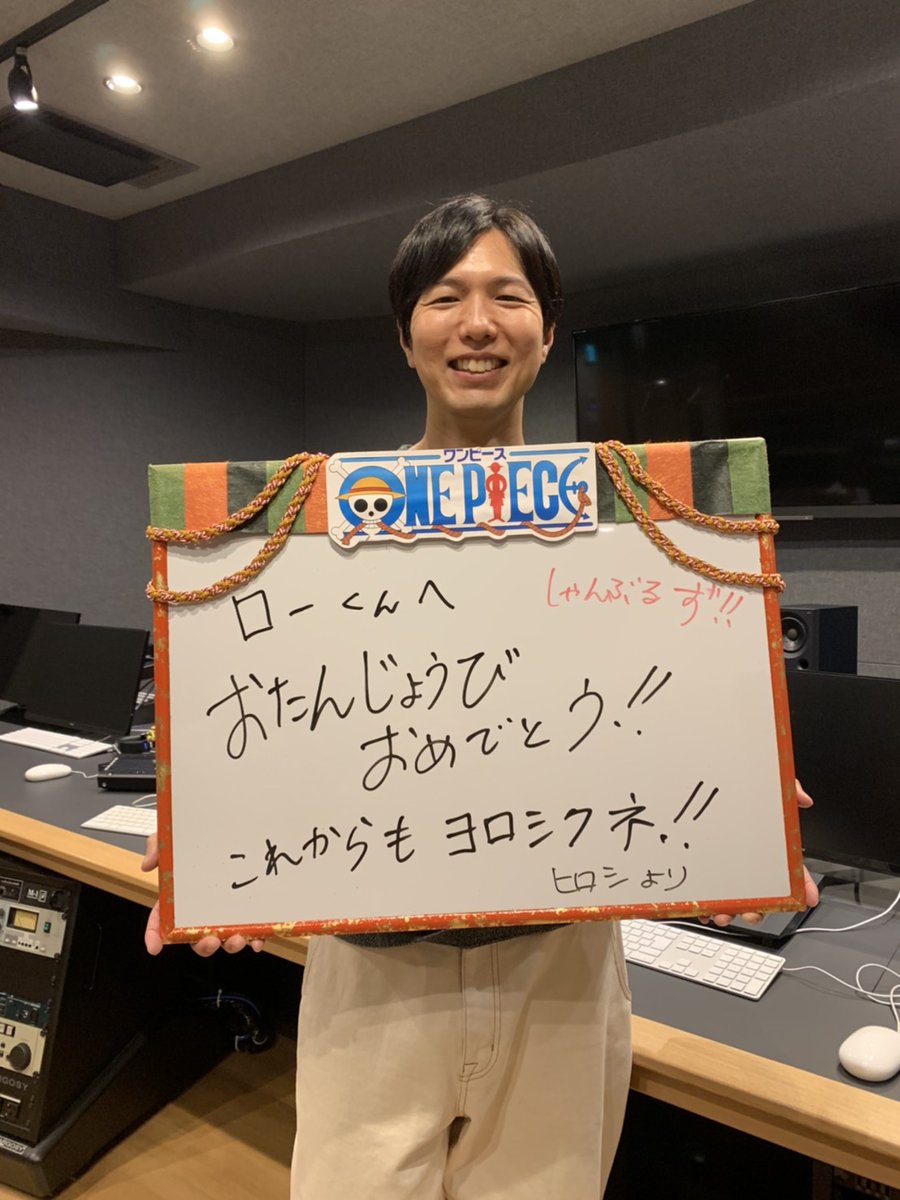 ワンピース
ONE PIECE
ローくんへ
しゃんぶるず!!
おたんじょうび
おめでとう!!
これからも ヨロシクネ!!
ヒロシより